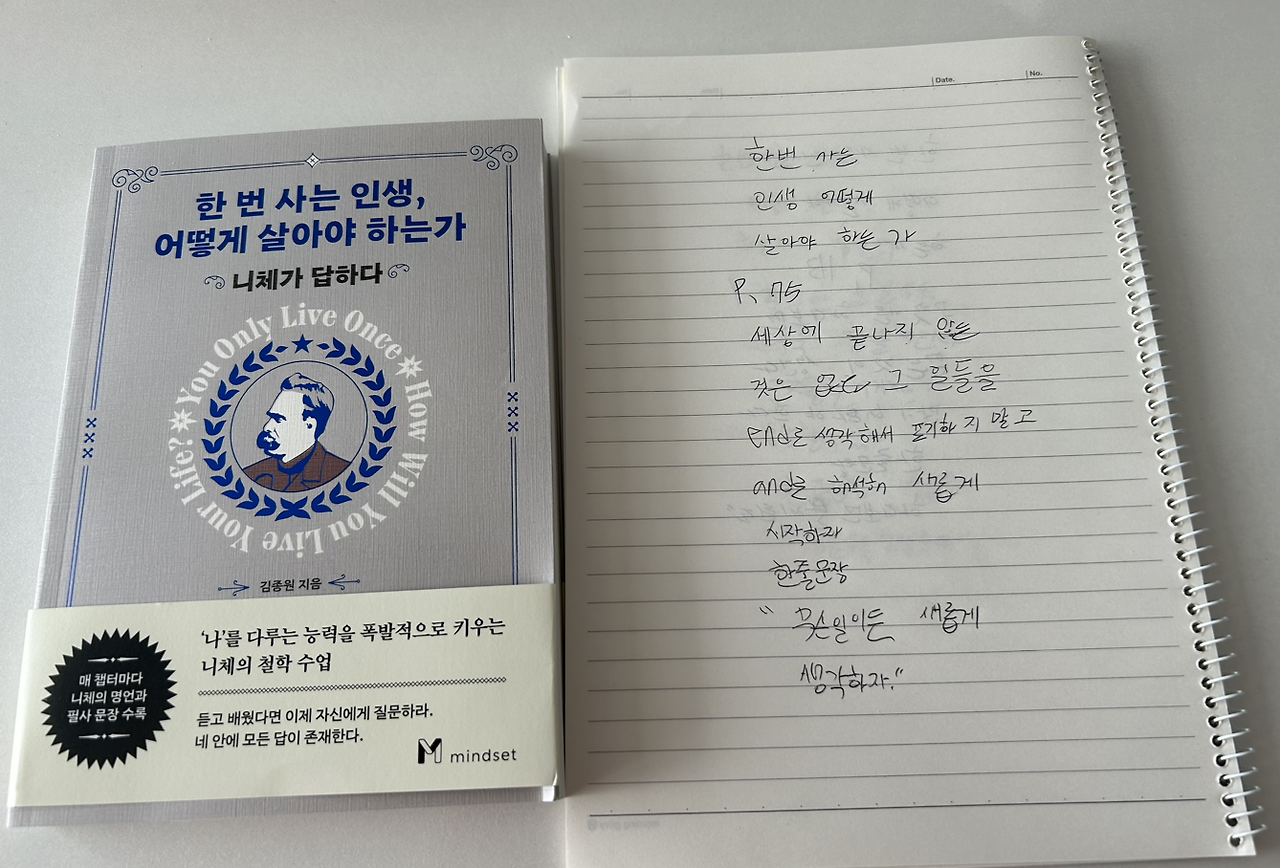 한 번 사는 인생,
어떻게 살아야 하는가
니체가 답하다
You Only Live Once
How Will You Live Your Life?
김종원 지음
‘나’를 다루는 능력을 폭발적으로 키우는
니체의 철학 수업
매 챕터마다
니체의 명언과
필사 문장 수록
듣고 배웠다면 이제 자신에게 질문하라.
네 안에 모든 답이 존재한다.
mindset
Date.
No.
한번 사는
인생 어떻게
살아야 하는 가
P. 75
세상에 끝나지 않는
것은 없다 그 일들을
end로 생각해서 포기하지 말고
and로 해석해 새롭게
시작하자
한줄문장
" 무슨일이든 새롭게
생각하자."